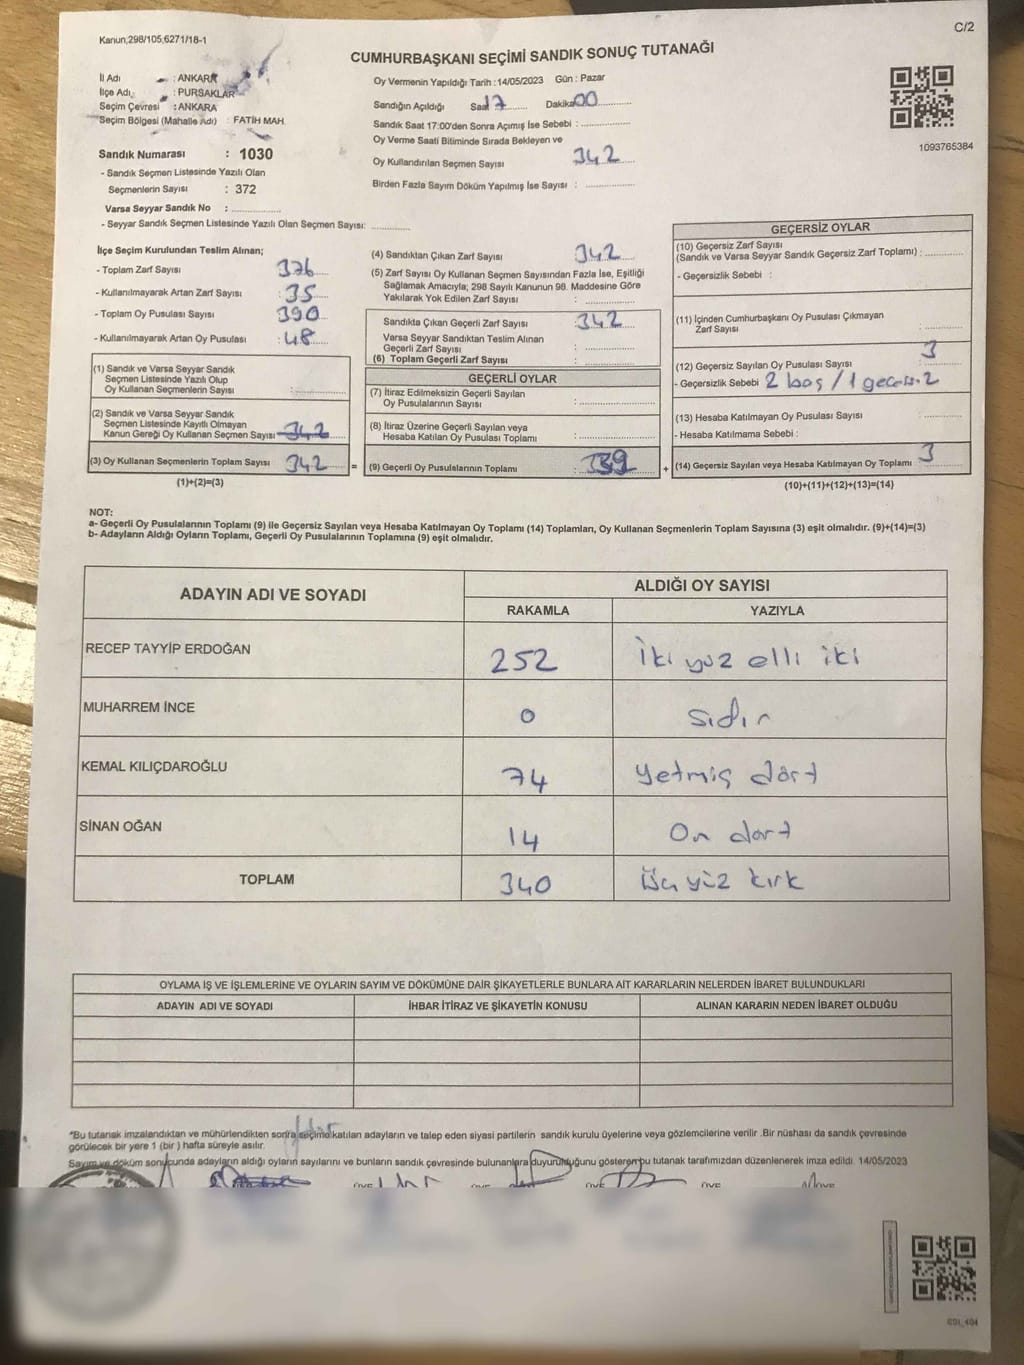 Kanun,298/105,6271/18-1
C/2
CUMHURBAŞKANI SEÇİMİ SANDIK SONUÇ TUTANAĞI
İl Adı : ANKARA
İlçe Adı : PURSAKLAR
Seçim Çevresi : ANKARA
Seçim Bölgesi (Mahalle Adı) : FATİH MAH.
Sandık Numarası : 1030
- Sandık Seçmen Listesinde Yazılı Olan
Seçmenlerin Sayısı : 372
Varsa Seyyar Sandık No :
- Seyyar Sandık Seçmen Listesinde Yazılı Olan Seçmen Sayısı:
Oy Vermenin Yapıldığı Tarih :14/05/2023 Gün : Pazar
Sandığın Açıldığı Saat 17 Dakika 00
Sandık Saat 17:00'den Sonra Açımış İse Sebebi :
Oy Verme Saati Bitiminde Sırada Bekleyen ve
Oy Kullandırılan Seçmen Sayısı 342
Birden Fazla Sayım Döküm Yapılmış İse Sayısı :
1093765384
İlçe Seçim Kurulundan Teslim Alınan;
- Toplam Zarf Sayısı 376
- Kullanılmayarak Artan Zarf Sayısı : 35
- Toplam Oy Pusulası Sayısı 390
- Kullanılmayarak Artan Oy Pusulası : 48
(1) Sandık ve Varsa Seyyar Sandık
Seçmen Listesinde Yazılı Olup
Oy Kullanan Seçmenlerin Sayısı :
(2) Sandık ve Varsa Seyyar Sandık
Seçmen Listesinde Kayıtlı Olmayan
Kanun Gereği Oy Kullanan Seçmen Sayısı 342
(3) Oy Kullanan Seçmenlerin Toplam Sayısı 342 =
(1)+(2)=(3)
(4) Sandıktan Çıkan Zarf Sayısı 342
(5) Zarf Sayısı Oy Kullanan Seçmen Sayısından Fazla İse, Eşitliği
Sağlamak Amacıyla; 298 Sayılı Kanunun 98. Maddesine Göre
Yakılarak Yok Edilen Zarf Sayısı :
Sandıkta Çıkan Geçerli Zarf Sayısı : 342
Varsa Seyyar Sandıktan Teslim Alınan
Geçerli Zarf Sayısı :
(6) Toplam Geçerli Zarf Sayısı :
GEÇERLİ OYLAR
(7) İtiraz Edilmeksizin Geçerli Sayılan
Oy Pusulalarının Sayısı :
(8) İtiraz Üzerine Geçerli Sayılan veya
Hesaba Katılan Oy Pusulası Toplamı :
(9) Geçerli Oy Pusulalarının Toplamı : 339 +
GEÇERSİZ OYLAR
(10) Geçersiz Zarf Sayısı
(Sandık ve Varsa Seyyar Sandık Geçersiz Zarf Toplamı) :
- Geçersizlik Sebebi :
(11) İçinden Cumhurbaşkanı Oy Pusulası Çıkmayan
Zarf Sayısı :
(12) Geçersiz Sayılan Oy Pusulası Sayısı : 3
- Geçersizlik Sebebi 2 boş / 1
(13) Hesaba Katılmayan Oy Pusulası Sayısı
- Hesaba Katılmama Sebebi :
(14) Geçersiz Sayılan veya Hesaba Katılmayan Oy Toplamı 3
(10)+(11)+(12)+(13)=(14)
NOT:
a- Geçerli Oy Pusulalarının Toplamı (9) ile Geçersiz Sayılan veya Hesaba Katılmayan Oy Toplamı (14) Toplamları, Oy Kullanan Seçmenlerin Toplam Sayısına (3) eşit olmalıdır. (9)+(14)=(3)
b- Adayların Aldığı Oyların Toplamı, Geçerli Oy Pusulalarının Toplamına (9) eşit olmalıdır.
ADAYIN ADI VE SOYADI ALDIĞI OY SAYISI
RAKAMLA YAZIYLA
RECEP TAYYİP ERDOĞAN 252 İki yüz elli iki
MUHARREM İNCE 0 sıdır
KEMAL KILIÇDAROĞLU 74 yetmiş dört
SİNAN OĞAN 14 On dört
TOPLAM 340 Üç yüz kırk
OYLAMA İŞ VE İŞLEMLERİNE VE OYLARIN SAYIM VE DÖKÜMÜNE DAİR ŞİKAYETLERLE BUNLARA AİT KARARLARIN NELERDEN İBARET BULUNDUKLARI
ADAYIN ADI VE SOYADI İHBAR İTİRAZ VE ŞİKAYETİN KONUSU ALINAN KARARIN NEDEN İBARET OLDUĞU
*Bu tutanak imzalandıktan ve mühürlendikten sonra seçime katılan adayların ve talep eden siyasi partilerin sandık kurulu üyelerine veya gözlemcilerine verilir .Bir nüshası da sandık çevresinde
görülecek bir yere 1 (bir ) hafta süreyle asılır.
Sayım ve döküm sonucunda adayların aldığı oyların sayılarını ve bunların sandık çevresinde bulunanlara duyurulduğunu gösteren bu tutanak tarafımızdan düzenlenerek imza edildi. 14/05/2023